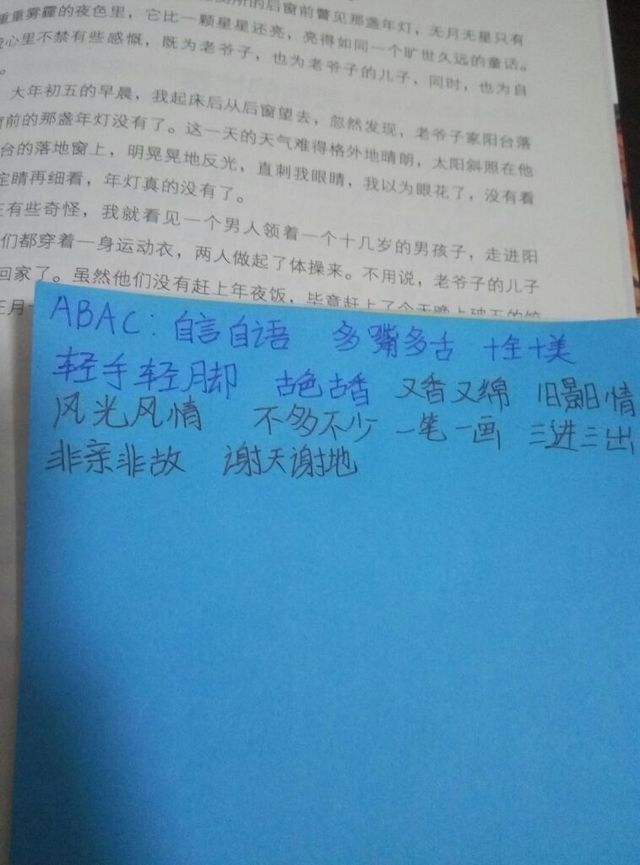 的后窗前瞥见那盏年灯，无月无星只有
重重雾霾的夜色里，它比一颗星星还亮，亮得如同一个旷世久远的童话。
心里不禁有些感慨，既为老爷子，也为老爷子的儿子，同时，也为自
。
大年初五的早晨，我起床后从后窗望去，忽然发现，老爷子家阳台落
窗前的那盏年灯没有了。这一天的天气难得格外地晴朗，太阳斜照在他
台的落地窗上，明晃晃地反光，直刺我眼睛，我以为眼花了，没有看
定睛再细看，年灯真的没有了。
在有些奇怪，我就看见一个男人领着一个十几岁的男孩子，走进阳
们都穿着一身运动衣，两人做起了体操来。不用说，老爷子的儿子
回家了。虽然他们没有赶上年夜饭，毕竟赶上了今天晚上破五的饺
正月
ABAC：自言自语 多嘴多舌 十全十美
轻手轻脚 古色古香 又香又绵 旧景旧情
风光风情 不多不少 一笔一画 三进三出
非亲非故 谢天谢地